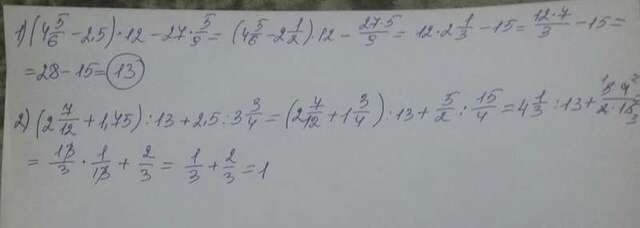 1) (4 5/6 − 2,5) · 12 − 27 · 5/9 = (4 5/6 − 2 1/2) · 12 − 27·5/9 = 12 · 2 1/3 − 15 = 12·7/3 − 15 =
= 28 − 15 = 13
2) (2 7/12 + 1,75) : 13 + 2,5 : 3 3/4 = (2 7/12 + 1 3/4) : 13 + 5/2 : 15/4 = 4 1/3 : 13 + 5·4/2·15
= 13/3 · 1/13 + 2/3 = 1/3 + 2/3 = 1